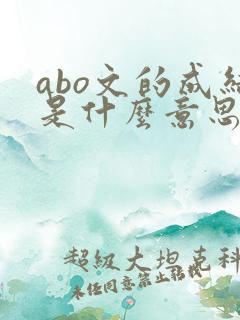 abo文的成結
是什麼意思
超級大坦克科
未經同意禁止轉載